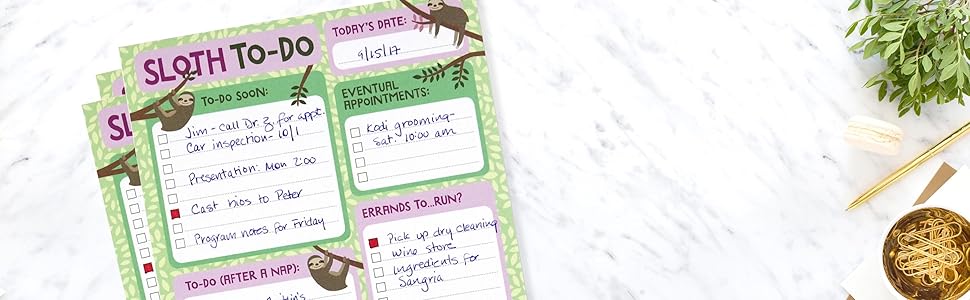 SLOTH TO-DO
TODAY'S DATE:
9/15/17
TO-DO SOON:
Jim - call Dr. Z. for appt.
Car inspection - 10/1
Presentation: Mon 2:00
Cast bios to Peter
Program notes for Friday
EVENTUAL
APPOINTMENTS:
Kodi grooming-
Sat. 10:00 am
ERRANDS TO...RUN?
Pick up dry cleaning
Wine store
Ingredients for
Sangria
TO-DO (AFTER A NAP):